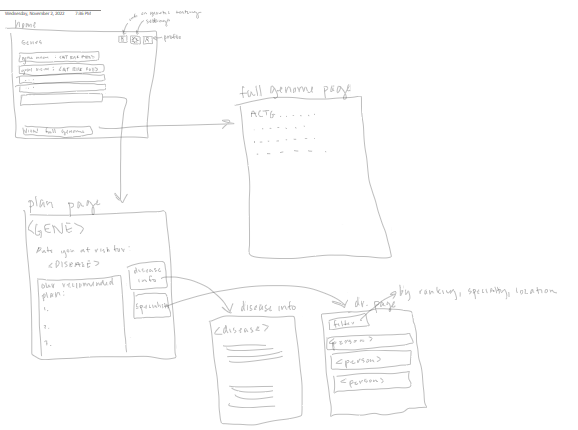 Wednesday, November 2, 2022 7:06 PM
Home
settings
profile
Genes
...
...
View full genome
full genome page
ACTG......
plan page
<GENE>
you at risk for:
<DISEASE>
our recommended
plan:
1.
2.
3.
disease
info
specialist
disease info
<disease>
dr. page
by ranking, specialty, location
filter
<person>
<person>
<person>